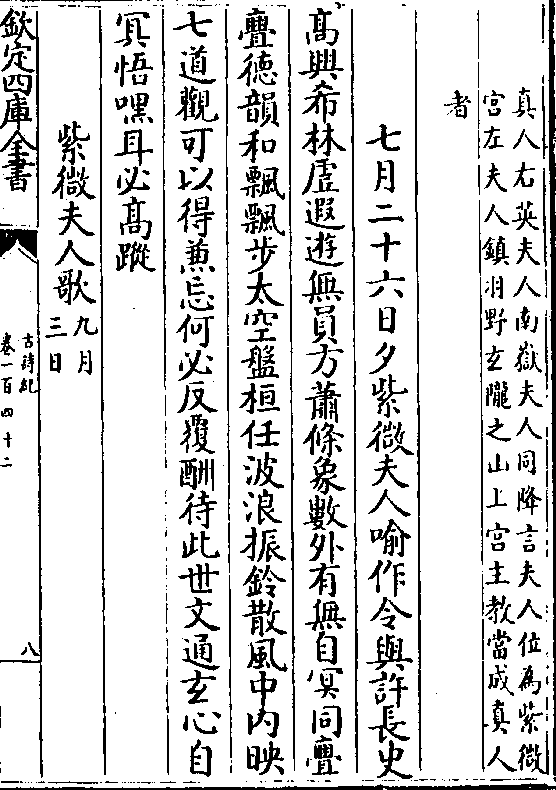 真人右英夫人南嶽夫人同降言夫人位為紫微
宮左夫人鎮羽野玄隴之山上宮主教當成真人
者
七月二十六日夕紫微夫人喻作令與許長史
髙興希林虛遐遊無員方蕭條象數外有無自冥同亹
亹德韻和飄飄步太空盤桓任波浪振鈴散風中内映
七道觀可以得兼忘何必反覆酬待此世文通玄心自
冥悟嘿耳必髙蹤
紫微夫人歌九月
三日
欽定四庫全書
古詩紀
卷一百四十二
八